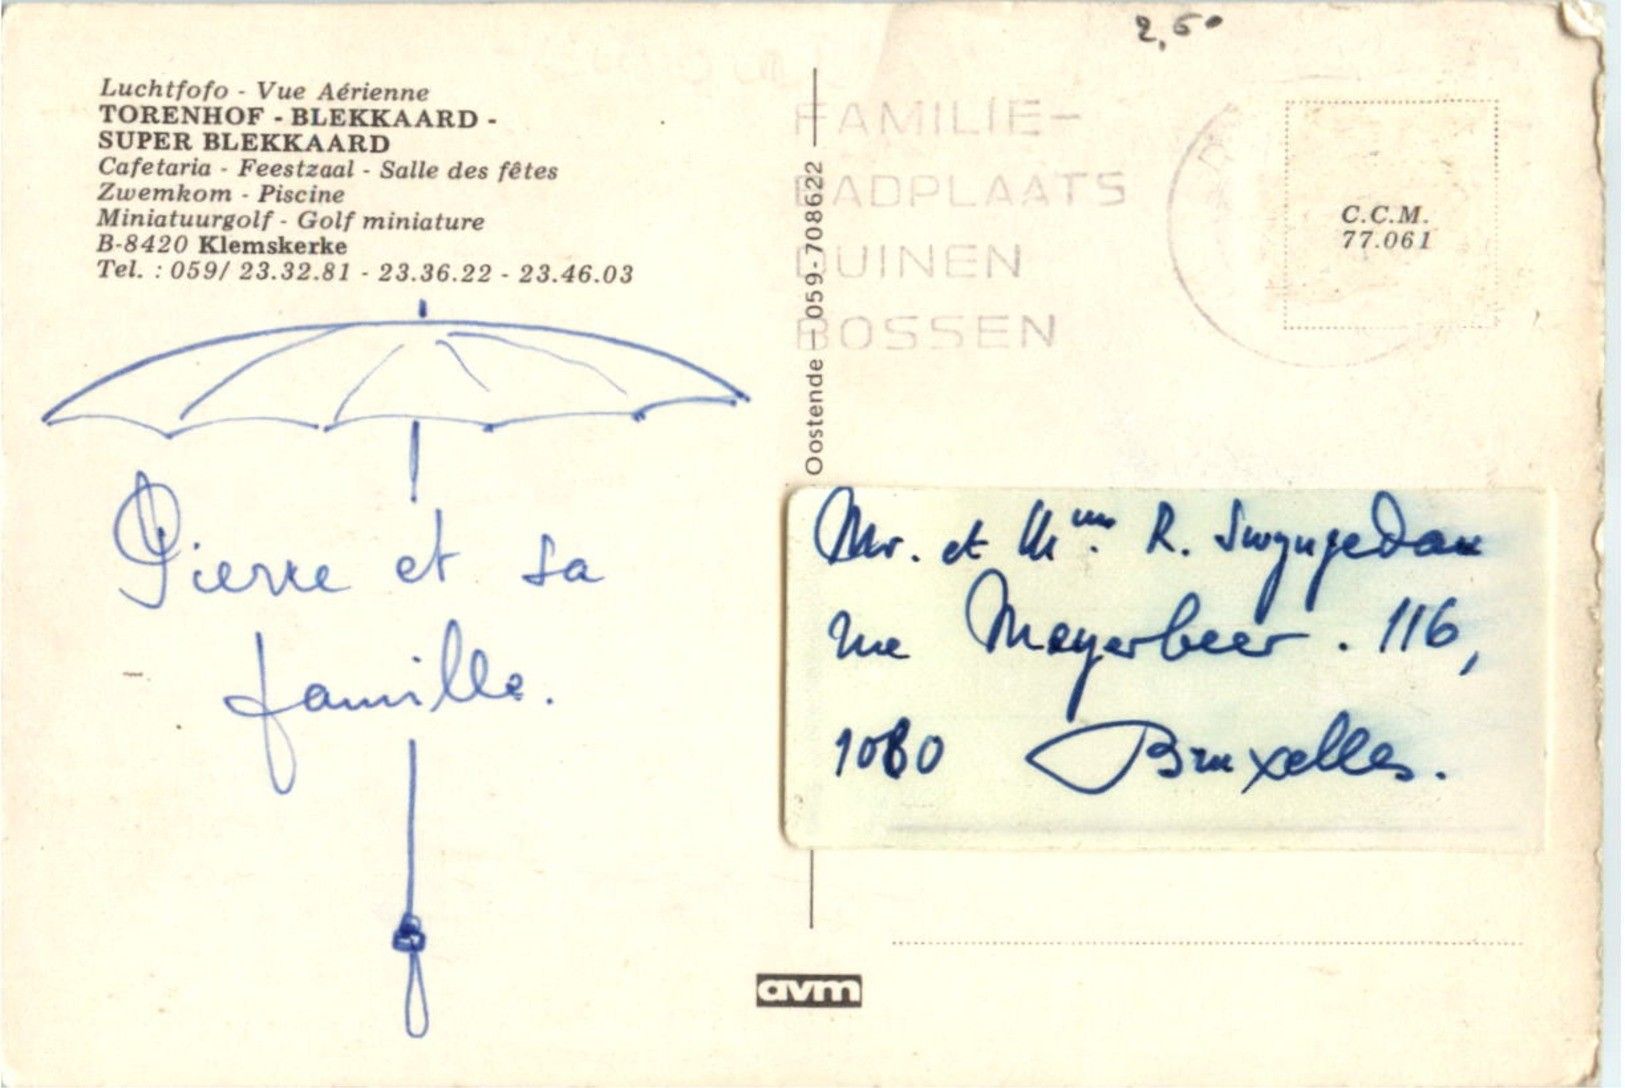 2,50
Luchtfofo - Vue Aérienne
TORENHOF - BLEKKAARD -
SUPER BLEKKAARD
Cafetaria - Feestzaal - Salle des fêtes
Zwemkom - Piscine
Miniatuurgolf - Golf miniature
B-8420 Klemskerke
Tel. : 059/ 23.32.81 - 23.36.22 - 23.46.03
Pierre et sa
famille.
FAMILIE-
BADPLAATS
DUINEN
BOSSEN
C.C.M.
77.061
Oostende — 059-708622
Mr. et Mme. R. Swyngedau
rue Meyerbeer. 116,
1080 Bruxelles.
avm